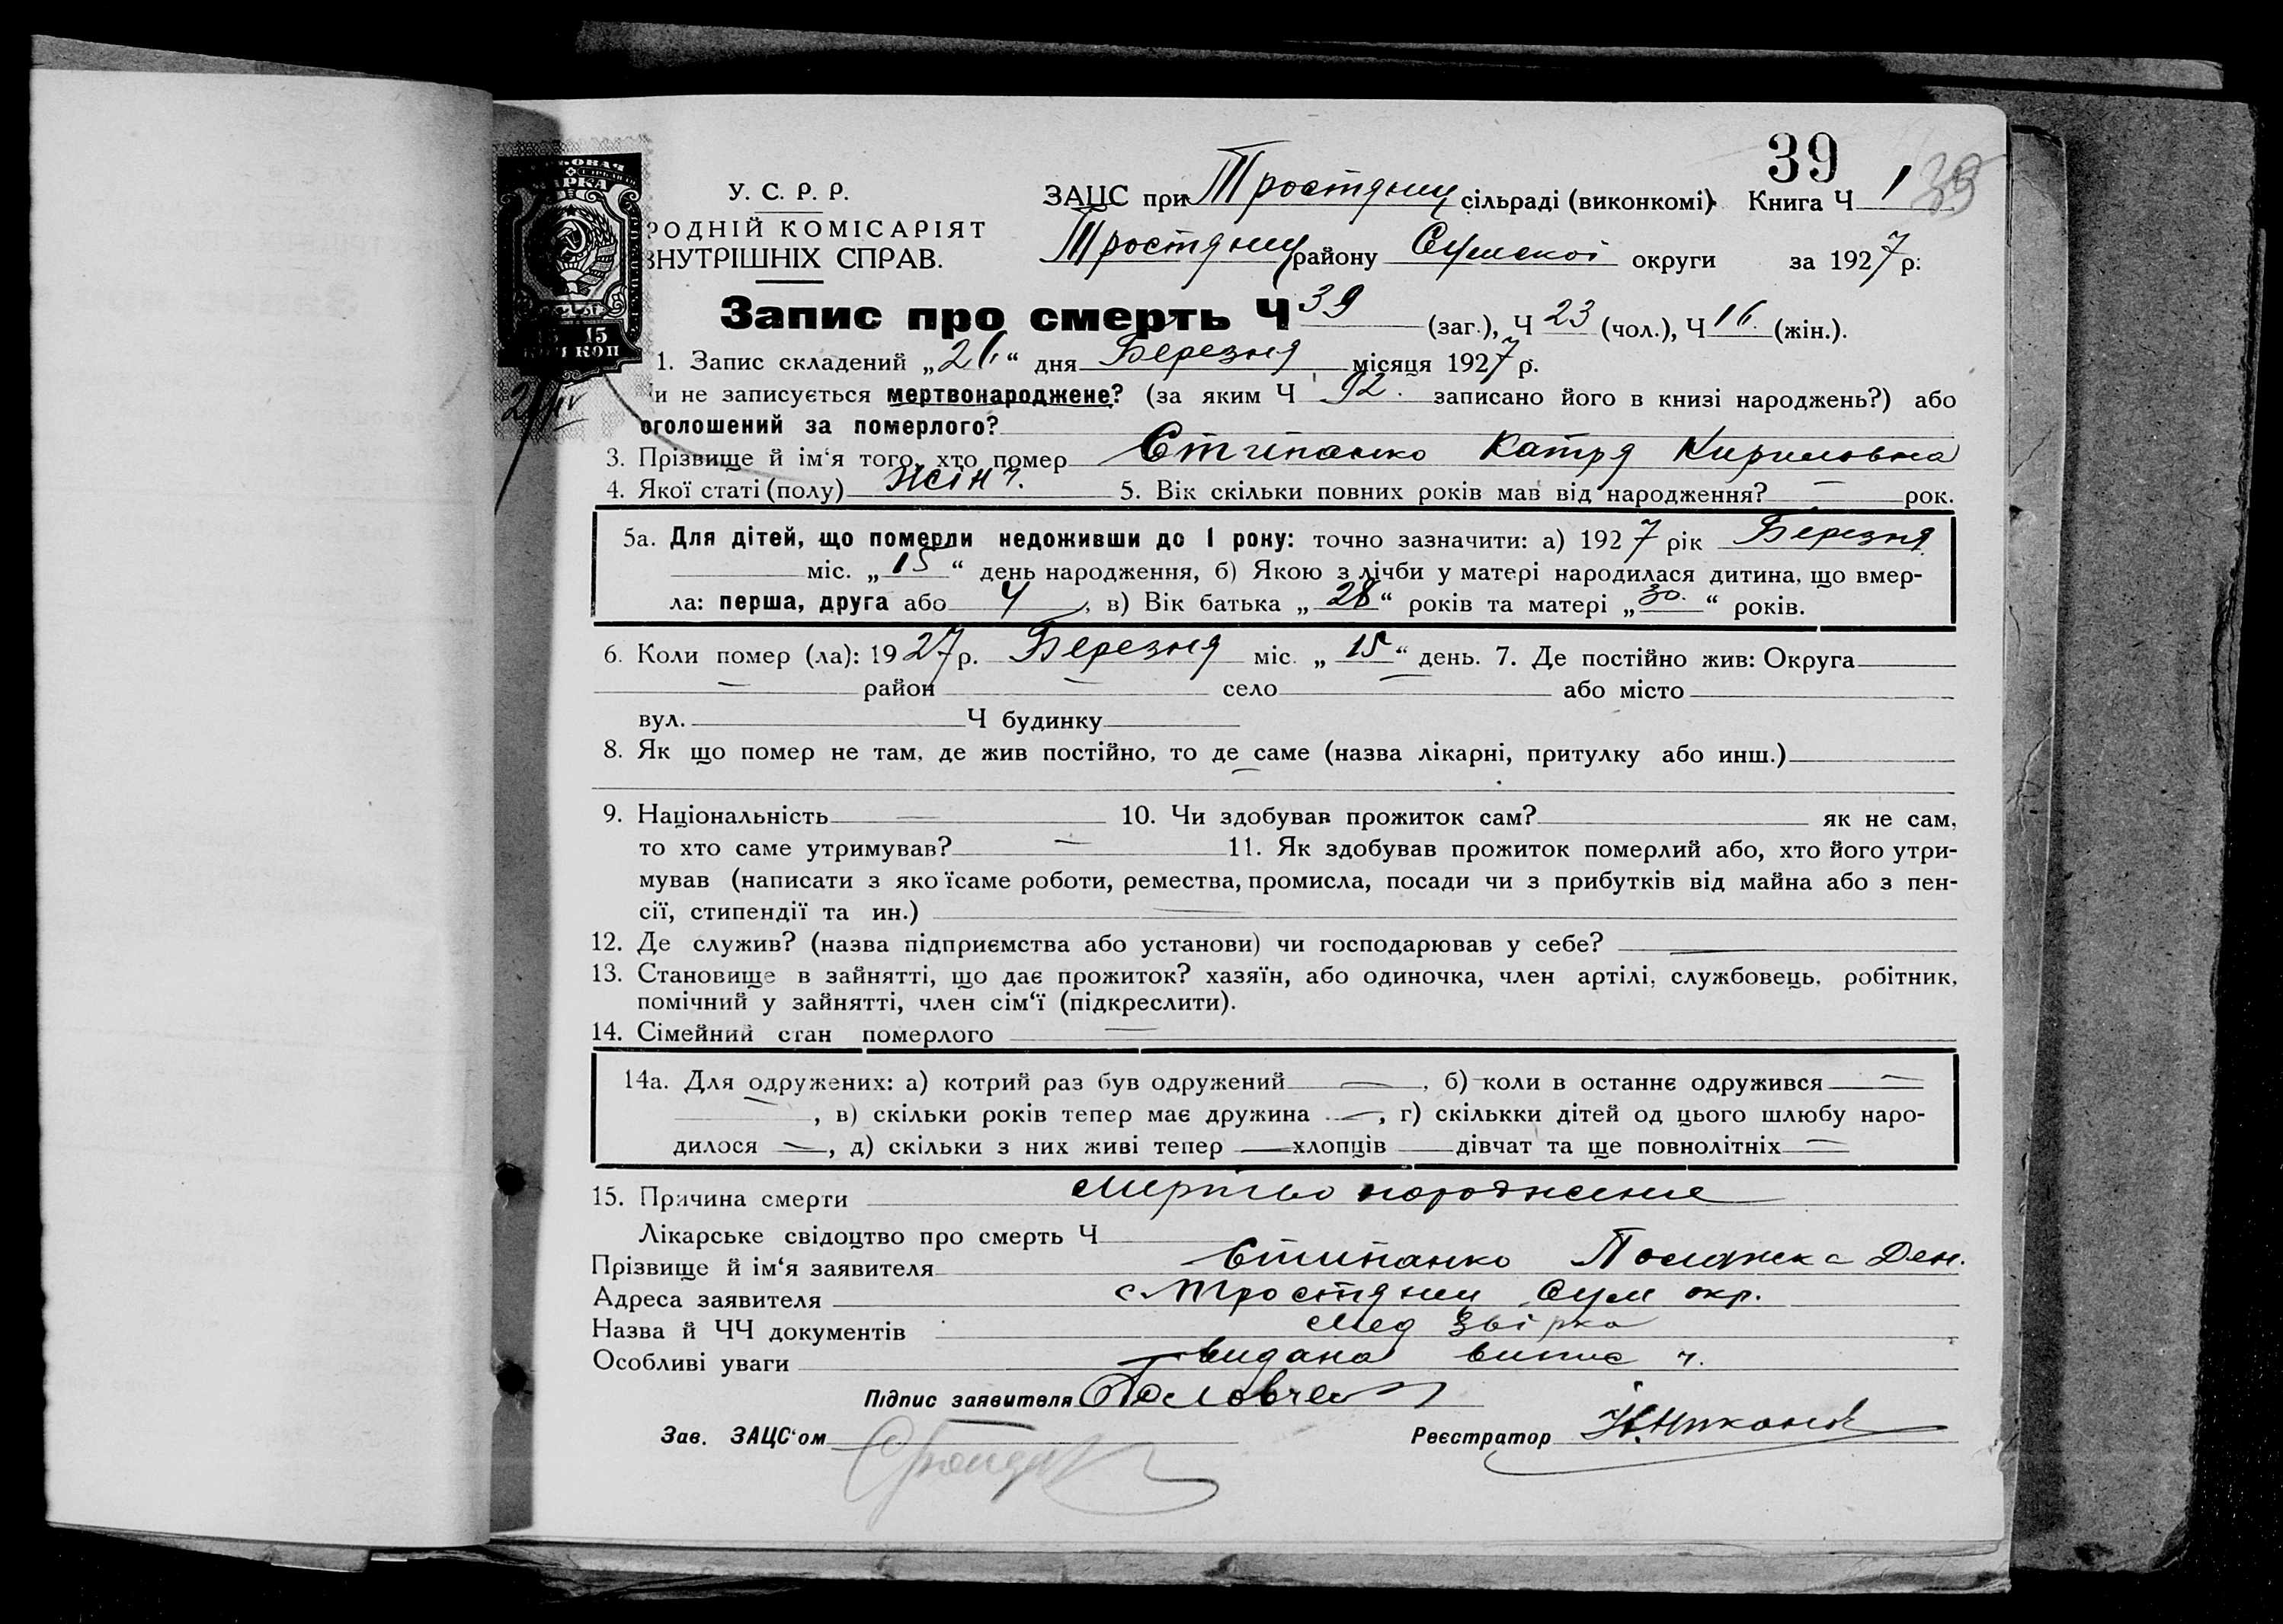 39
У. С. Р. Р. ЗАЦС при Тростянец сільраді (виконкомі) Книга Ч 1 39
РОДНІЙ КОМІСАРІЯТ
ВНУТРІШНІХ СПРАВ.
Тростянец району Сумскої округи за 1927 р.
МАРКА
15
КОП
Запис про смерть Ч 39 (заг.), Ч 23 (чол.), Ч 16. (жін.).
1. Запис складений „21“ дня Березня місяця 1927 р.
и не записується мертвонароджене? (за яким Ч 92. записано його в книзі народжень?) або
оголошений за померлого?
3. Прізвище й ім‘я того, хто помер Стипанко Катря Кириловна
4. Якої статі (полу) жін ч. 5. Вік скільки повних років мав від народження? — рок.
5а. Для дітей, що померли недоживши до 1 року: точно зазначити: а) 1927 рік Березня
міс. „15“ день народження, б) Якою з лічби у матері народилася дитина, що вмер-
ла: перша, друга або 4, в) Вік батька „28“ років та матері „30.“ років.
6. Коли помер (ла): 1927 р. Березня міс. „15“ день. 7. Де постійно жив: Округа
— район — село — або місто
вул. Ч будинку
8. Як що помер не там, де жив постійно, то де саме (назва лікарні, притулку або инш.)
9. Національність — 10. Чи здобував прожиток сам? як не сам,
то хто саме утримував? — 11. Як здобував прожиток померлий або, хто його утри-
мував (написати з яко їсаме роботи, ремества, промисла, посади чи з прибутків від майна або з пен-
сії, стипендії та ин.) —
12. Де служив? (назва підприємства або установи) чи господарював у себе? —
13. Становище в зайнятті, що дає прожиток? хазяїн, або одиночка, член артілі, службовець, робітник,
помічний у зайнятті, член сім‘ї (підкреслити).
14. Сімейний стан померлого —
14а. Для одружених: а) котрий раз був одружений —, б) коли в останнє одружився —
—, в) скільки років тепер має дружина —, г) скількки дітей од цього шлюбу наро-
дилося —, д) скільки з них живі тепер — хлопців — дівчат та ще повнолітніх —
15. Причина смерти мертво народження
Лікарське свідоцтво про смерть Ч
Прізвище й ім‘я заявителя Стипанко Ден.
Адреса заявителя с Тростянец Сум окр.
Назва й ЧЧ документів Мед
Особливі уваги видана випис ч.
Підпис заявителя
Зав. ЗАЦС‘ом
Реєстратор